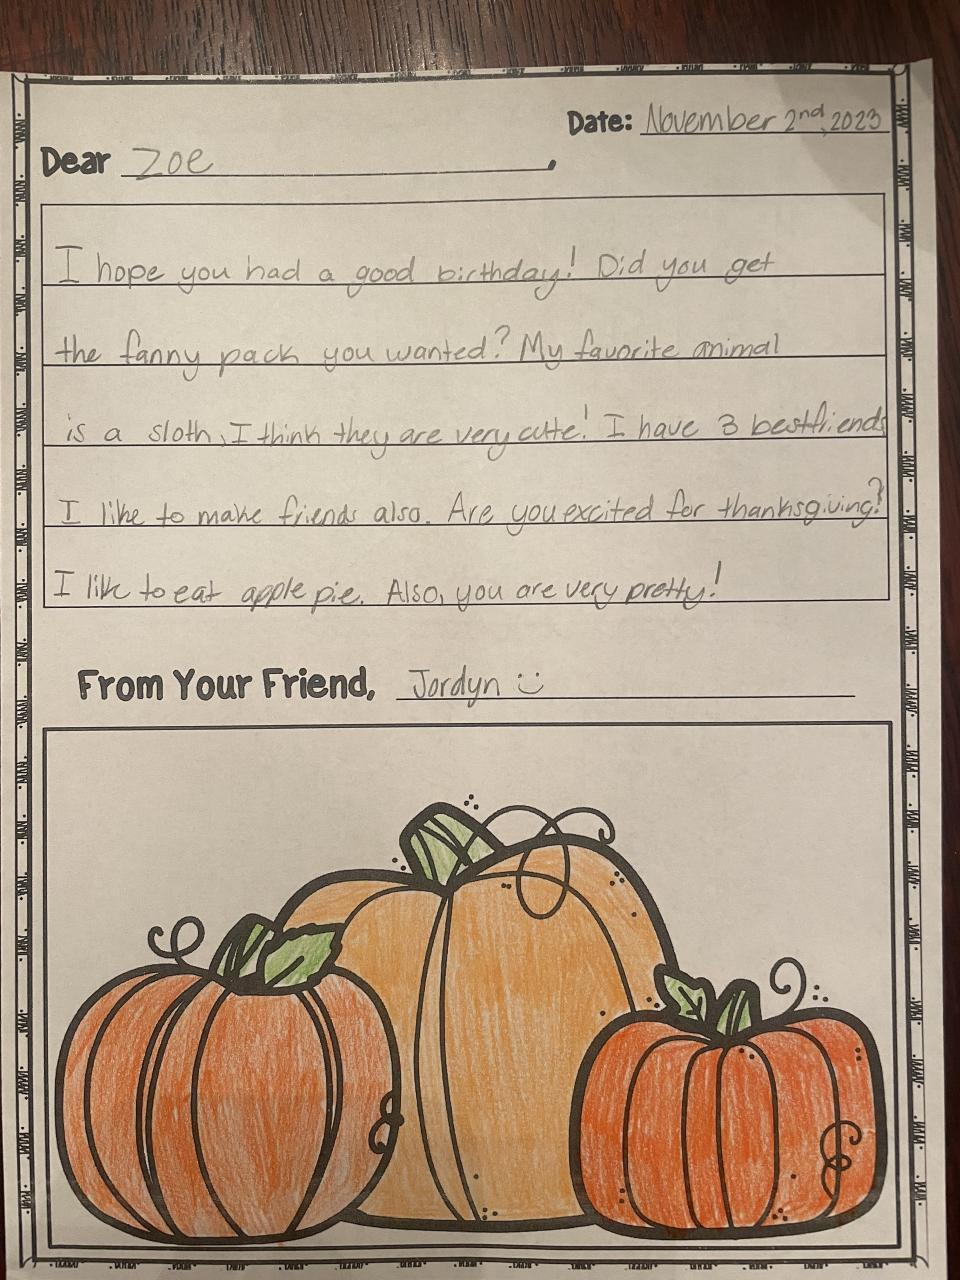 Date: November 2nd, 2023
Dear Zoe,
I hope you had a good birthday! Did you get
the fanny pack you wanted? My favorite animal
is a sloth, I think they are very cute! I have 3 bestfriends
I like to make friends also. Are you excited for thanksgiving?
I like to eat apple pie. Also, you are very pretty!
From Your Friend, Jordyn